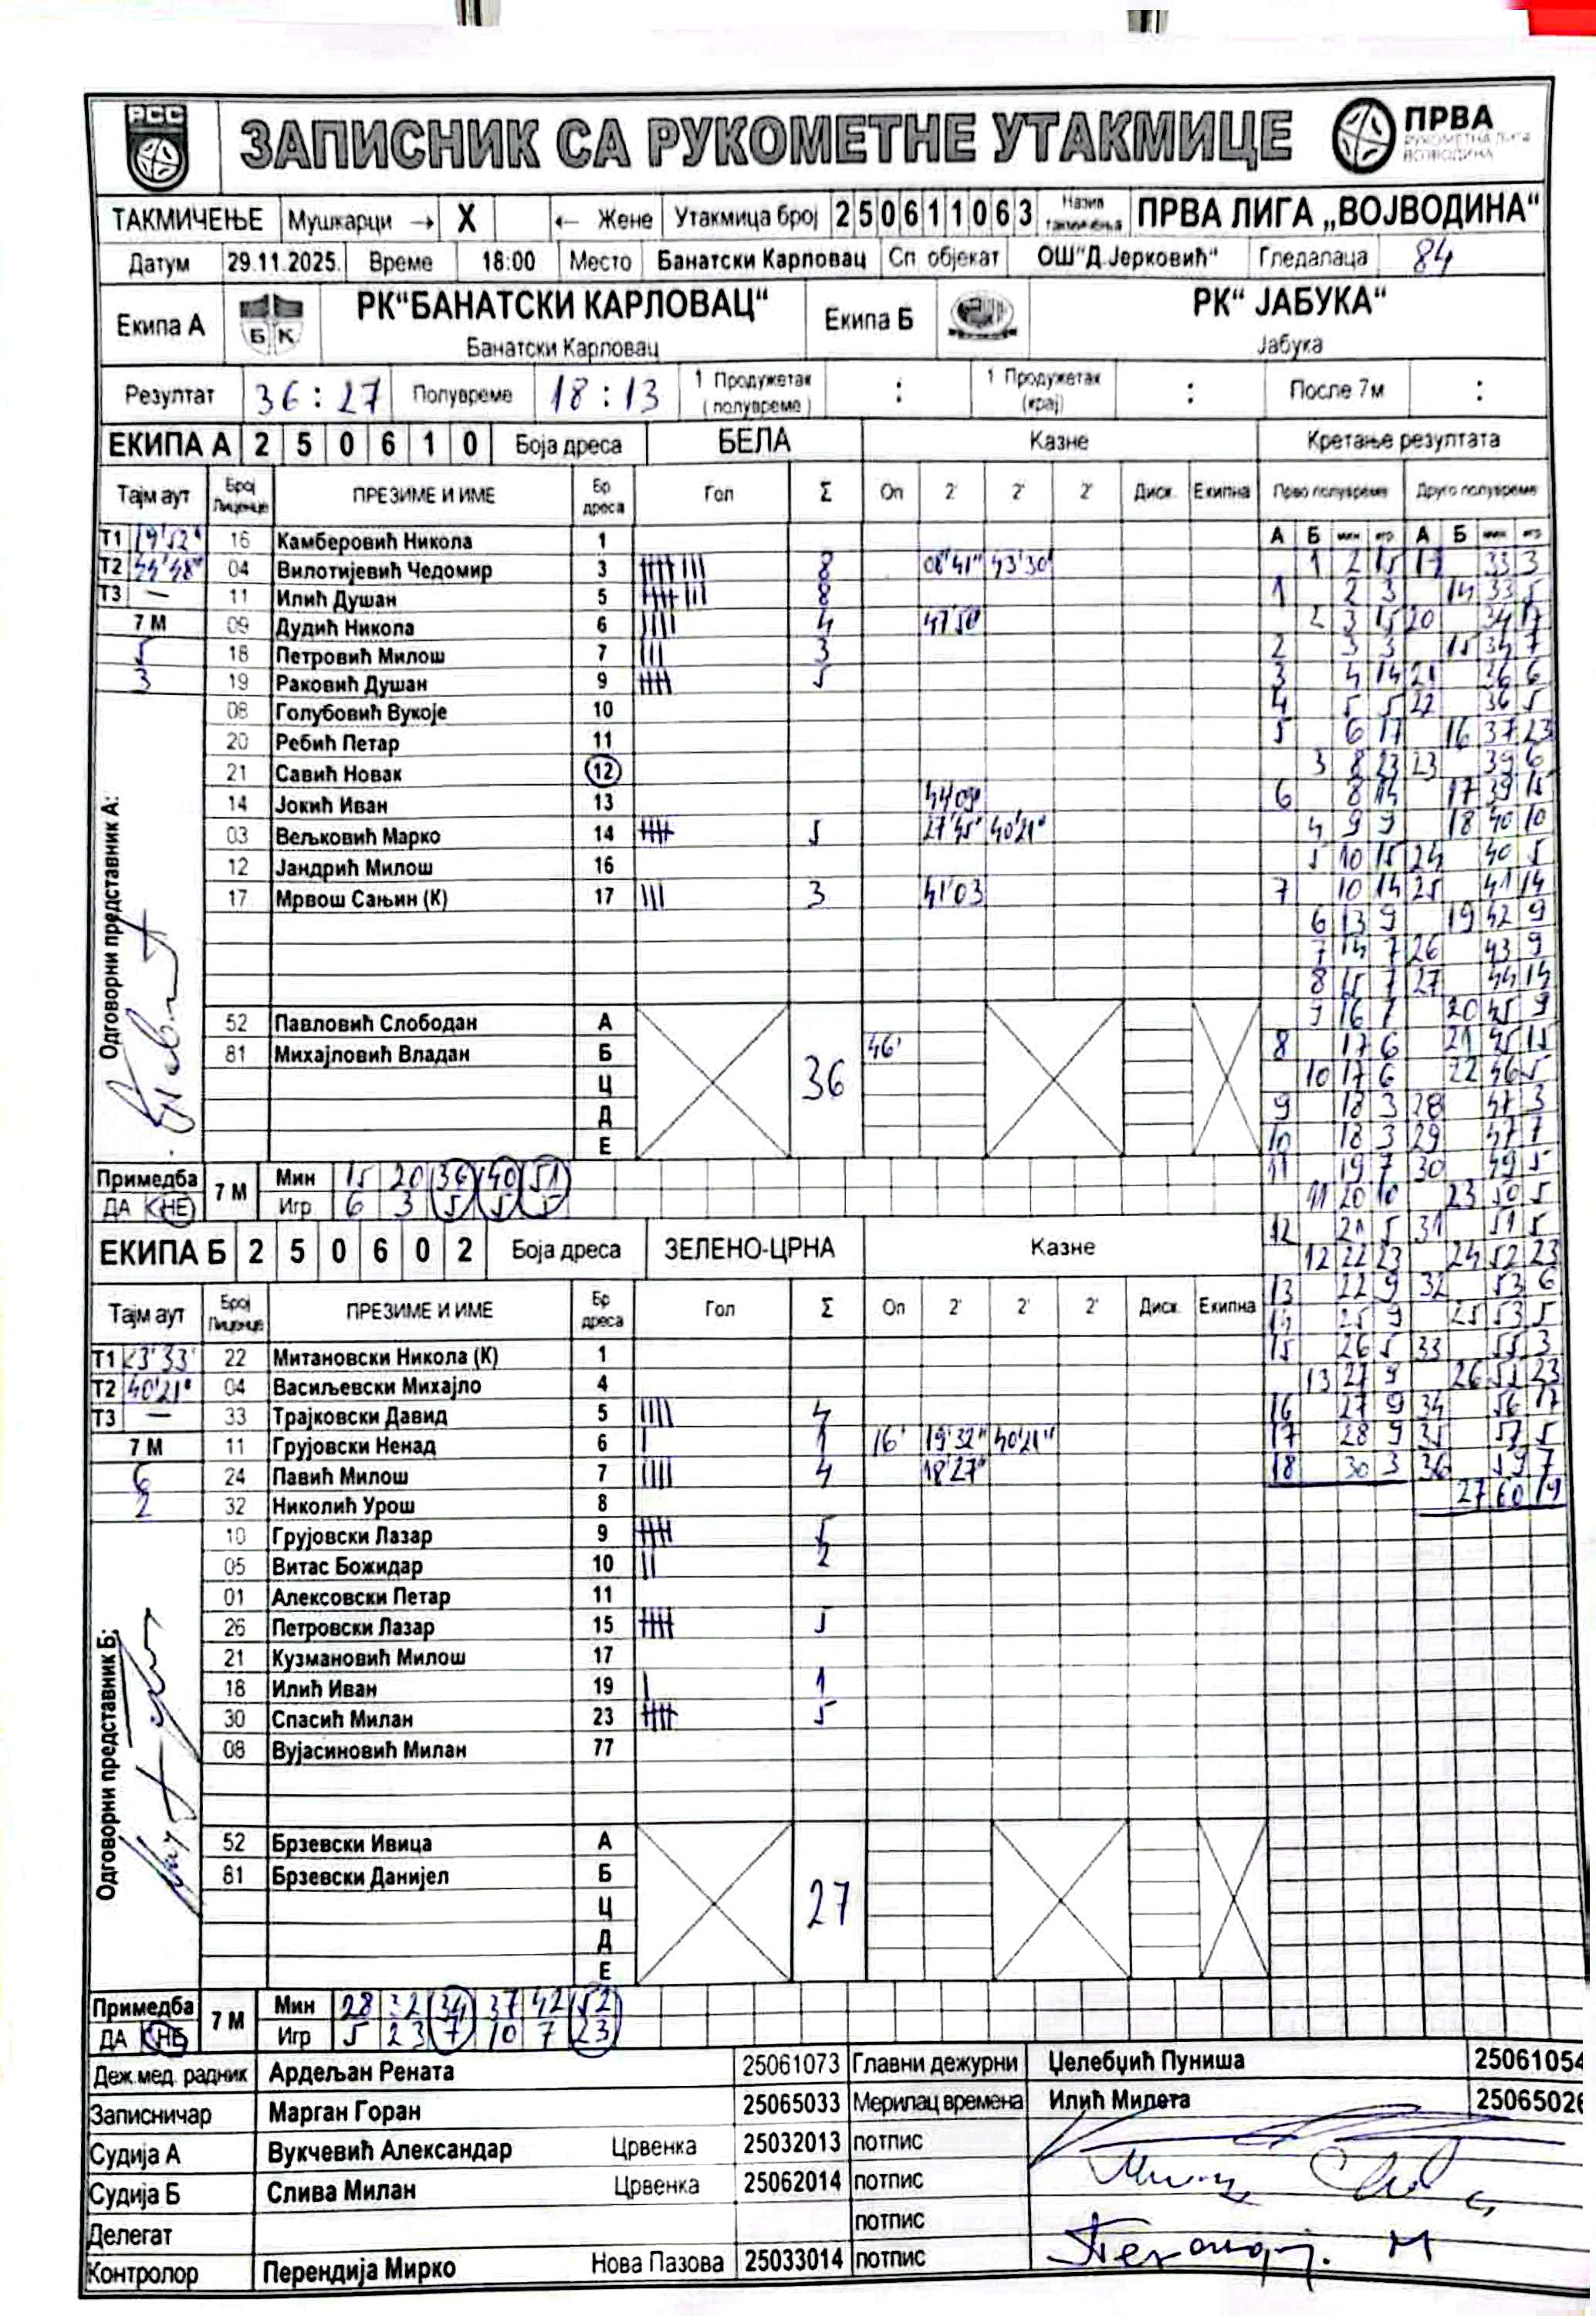 РСС ЗАПИСНИК СА РУКОМЕТНЕ УТАКМИЦЕ ПРВА РУКОМЕТНА ЛИГА ВОЈВОДИНА
ТАКМИЧЕЊЕ Мушкарци → X ← Жене Утакмица број 250611063 Назив такмичења ПРВА ЛИГА „ВОЈВОДИНА“
Датум 29.11.2025. Време 18:00 Место Банатски Карловац Сп. објекат ОШ"Д.Јерковић" Гледалаца 84
Екипа А БК РК“БАНАТСКИ КАРЛОВАЦ“ Банатски Карловац Екипа Б РК“ ЈАБУКА“ Јабука
Резултат 36 : 27 Полувреме 18 : 13 1 Продужетак (полувреме) : 1 Продужетак (крај) : После 7м :
ЕКИПА А 2 5 0 6 1 0 Боја дреса БЕЛА Казне Кретање резултата
Тајм аут Број Лиценце ПРЕЗИМЕ И ИМЕ Бр дреса Гол Σ Оп 2' 2' 2' Диск. Екипна Прво полувреме Друго полувреме
А Б мин игр А Б мин игр
Т1 19'52" 16 Камберовић Никола 1
Т2 44'48" 04 Вилотијевић Чедомир 3 8 08'41" 43'30"
Т3 — 11 Илић Душан 5 8
7 М 09 Дудић Никола 6 4 47'50"
5 18 Петровић Милош 7 3
3 19 Раковић Душан 9 5
08 Голубовић Вукоје 10
20 Ребић Петар 11
21 Савић Новак 12
14 Јокић Иван 13 44'09"
03 Вељковић Марко 14 5 27'45" 40'21"
12 Јандрић Милош 16
17 Мрвош Сањин (К) 17 3 41'03
Одговорни представник А:
52 Павловић Слободан А
81 Михајловић Владан Б 46'
Ц
Д
Е
36
Примедба ДА НЕ 7 М Мин 15 20 36 40 51
Игр 6 3 5 5 5
1 2 15
1 2 3
2 3 15
2 3 3
3 4 14
4 5 5
5 6 17
3 8 23
6 8 14
4 9 9
5 10 15
7 10 14
6 13 9
7 14 7
8 15 7
9 16 7
8 17 6
10 17 6
9 18 3
10 18 3
11 19 7
11 20 10
12 21 5
12 22 23
13 22 9
14 25 9
15 26 5
13 27 9
16 27 9
17 28 9
18 30 3
19 33 3
14 33 5
20 34 17
15 34 7
21 36 6
22 36 5
16 37 23
23 39 6
17 39 15
18 40 10
24 40 5
25 41 14
19 42 9
26 43 9
27 44 14
20 45 9
21 45 15
22 46 5
28 47 3
29 47 7
30 49 5
23 50 5
31 51 5
24 52 23
32 53 6
25 53 5
33 55 3
26 55 23
34 56 17
35 57 5
36 59 7
27 60 19
ЕКИПА Б 2 5 0 6 0 2 Боја дреса ЗЕЛЕНО-ЦРНА Казне
Тајм аут Број Лиценце ПРЕЗИМЕ И ИМЕ Бр дреса Гол Σ Оп 2' 2' 2' Диск. Екипна
Т1 23'33" 22 Митановски Никола (К) 1
Т2 40'21" 04 Васиљевски Михајло 4
Т3 — 33 Трајковски Давид 5 4
7 М 11 Грујовски Ненад 6 1 16' 19'32" 40'21"
6 24 Павић Милош 7 4 18'27"
2 32 Николић Урош 8
10 Грујовски Лазар 9 5
05 Витас Божидар 10 2
01 Алексовски Петар 11
26 Петровски Лазар 15 5
21 Кузмановић Милош 17
18 Илић Иван 19 1
30 Спасић Милан 23 5
08 Вујасиновић Милан 77
Одговорни представник Б:
52 Брзевски Ивица А
81 Брзевски Данијел Б
Ц
Д
Е
27
Примедба ДА НЕ 7 М Мин 28 32 34 37 42 52
Игр 5 23 7 10 7 23
Деж.мед. радник Ардељан Рената 25061073 Главни дежурни Џелебџић Пуниша 25061054
Записничар Марган Горан 25065033 Мерилац времена Илић Милета 2506502
Судија А Вукчевић Александар Црвенка 25032013 потпис
Судија Б Слива Милан Црвенка 25062014 потпис
Делегат потпис
Контролор Перендија Мирко Нова Пазова 25033014 потпис